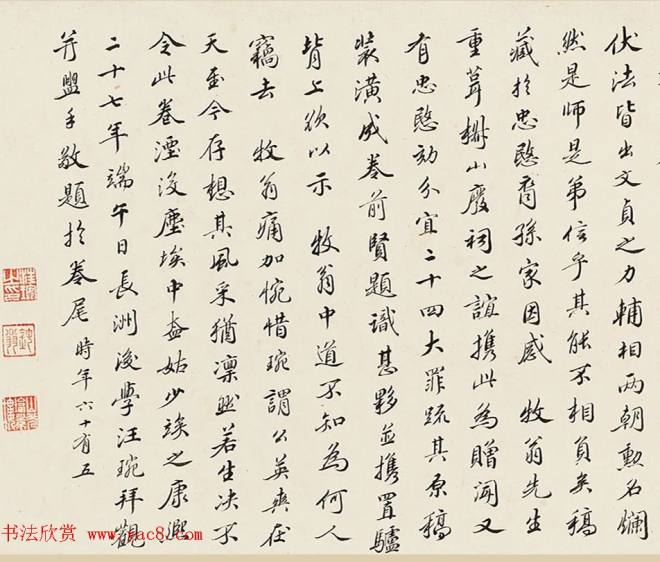 伏法皆出文貞之力輔相两朝勲名爛
然是師是弟信乎其能不相負矣稿
藏於忠愍裔孫家因感 牧翁先生
重葺樹山廢祠之誼携此為贈聞又
有忠愍劾分宜二十四大罪疏其原稿
装潢成卷前賢題識甚夥並携置驢
背上欲以示 牧翁中道不知為何人
竊去 牧翁痛加惋惜琬謂公英爽在
天至今存想其風采猶凛然若生决不
令此卷湮没塵埃中盍姑少竢之康熙
二十七年端午日長洲後學汪琬拜觀
并盥手敬題於卷尾時年六十有五
书法欣赏 www.yac8.com